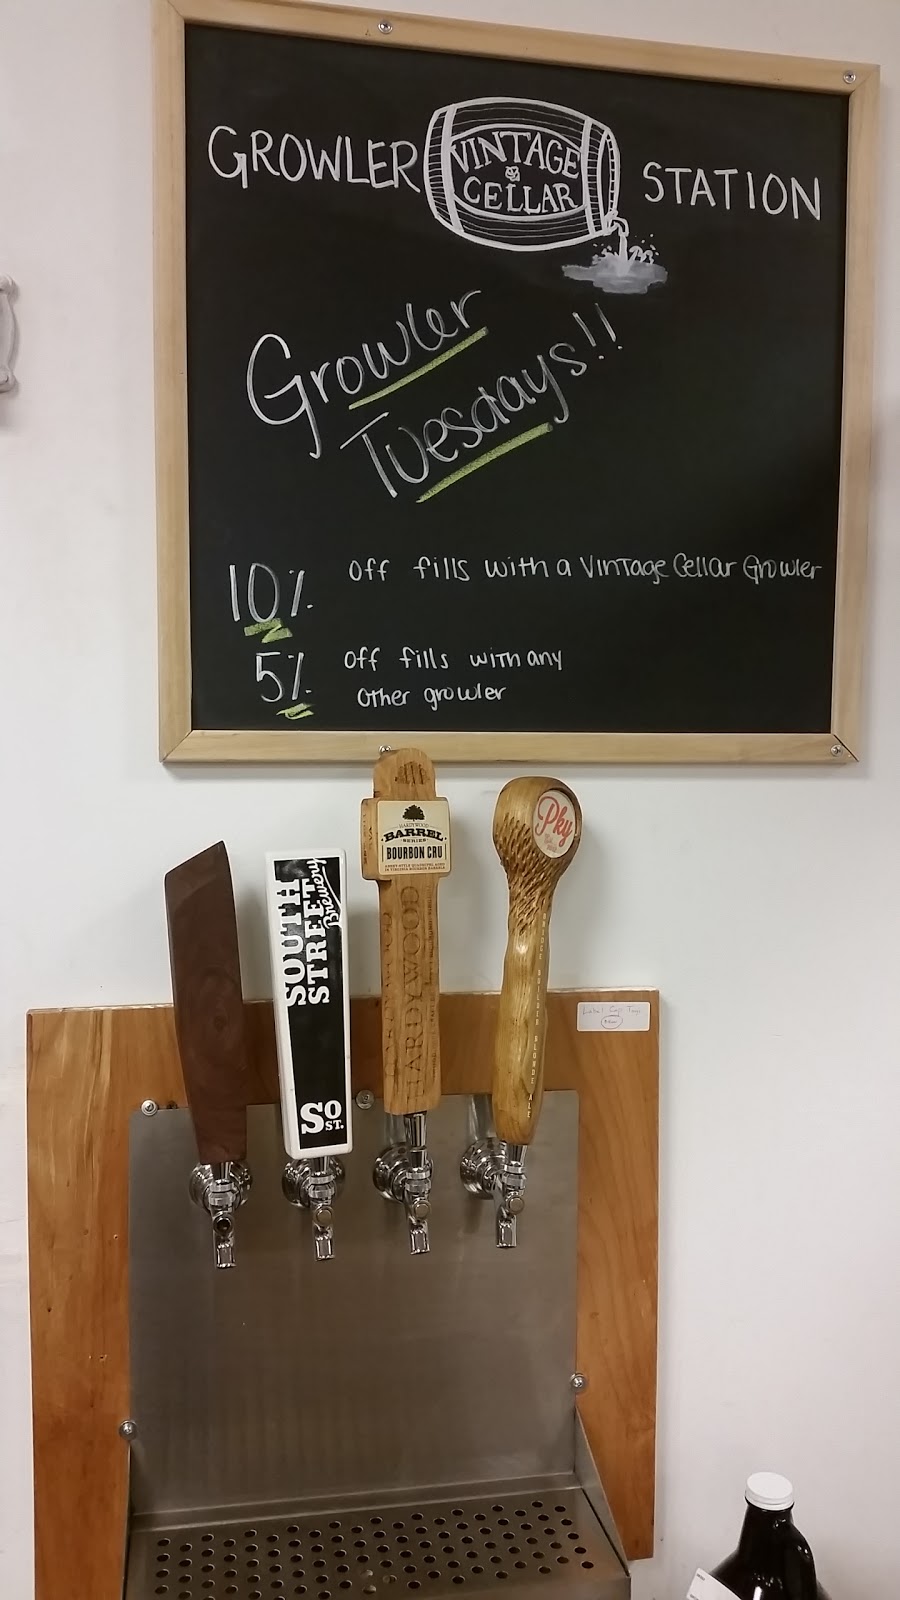 GROWLER VINTAGE CELLAR STATION
Growler
Tuesdays!!
10% off fills with a Vintage Cellar Growler
5% off fills with any
other growler
HARDYWOOD
BARREL
SERIES
BOURBON CRU
Pky
SOUTH
STREET
Brewery
HARDYWOOD
BLONDE ALE
Label Cap Tops
SO
ST.